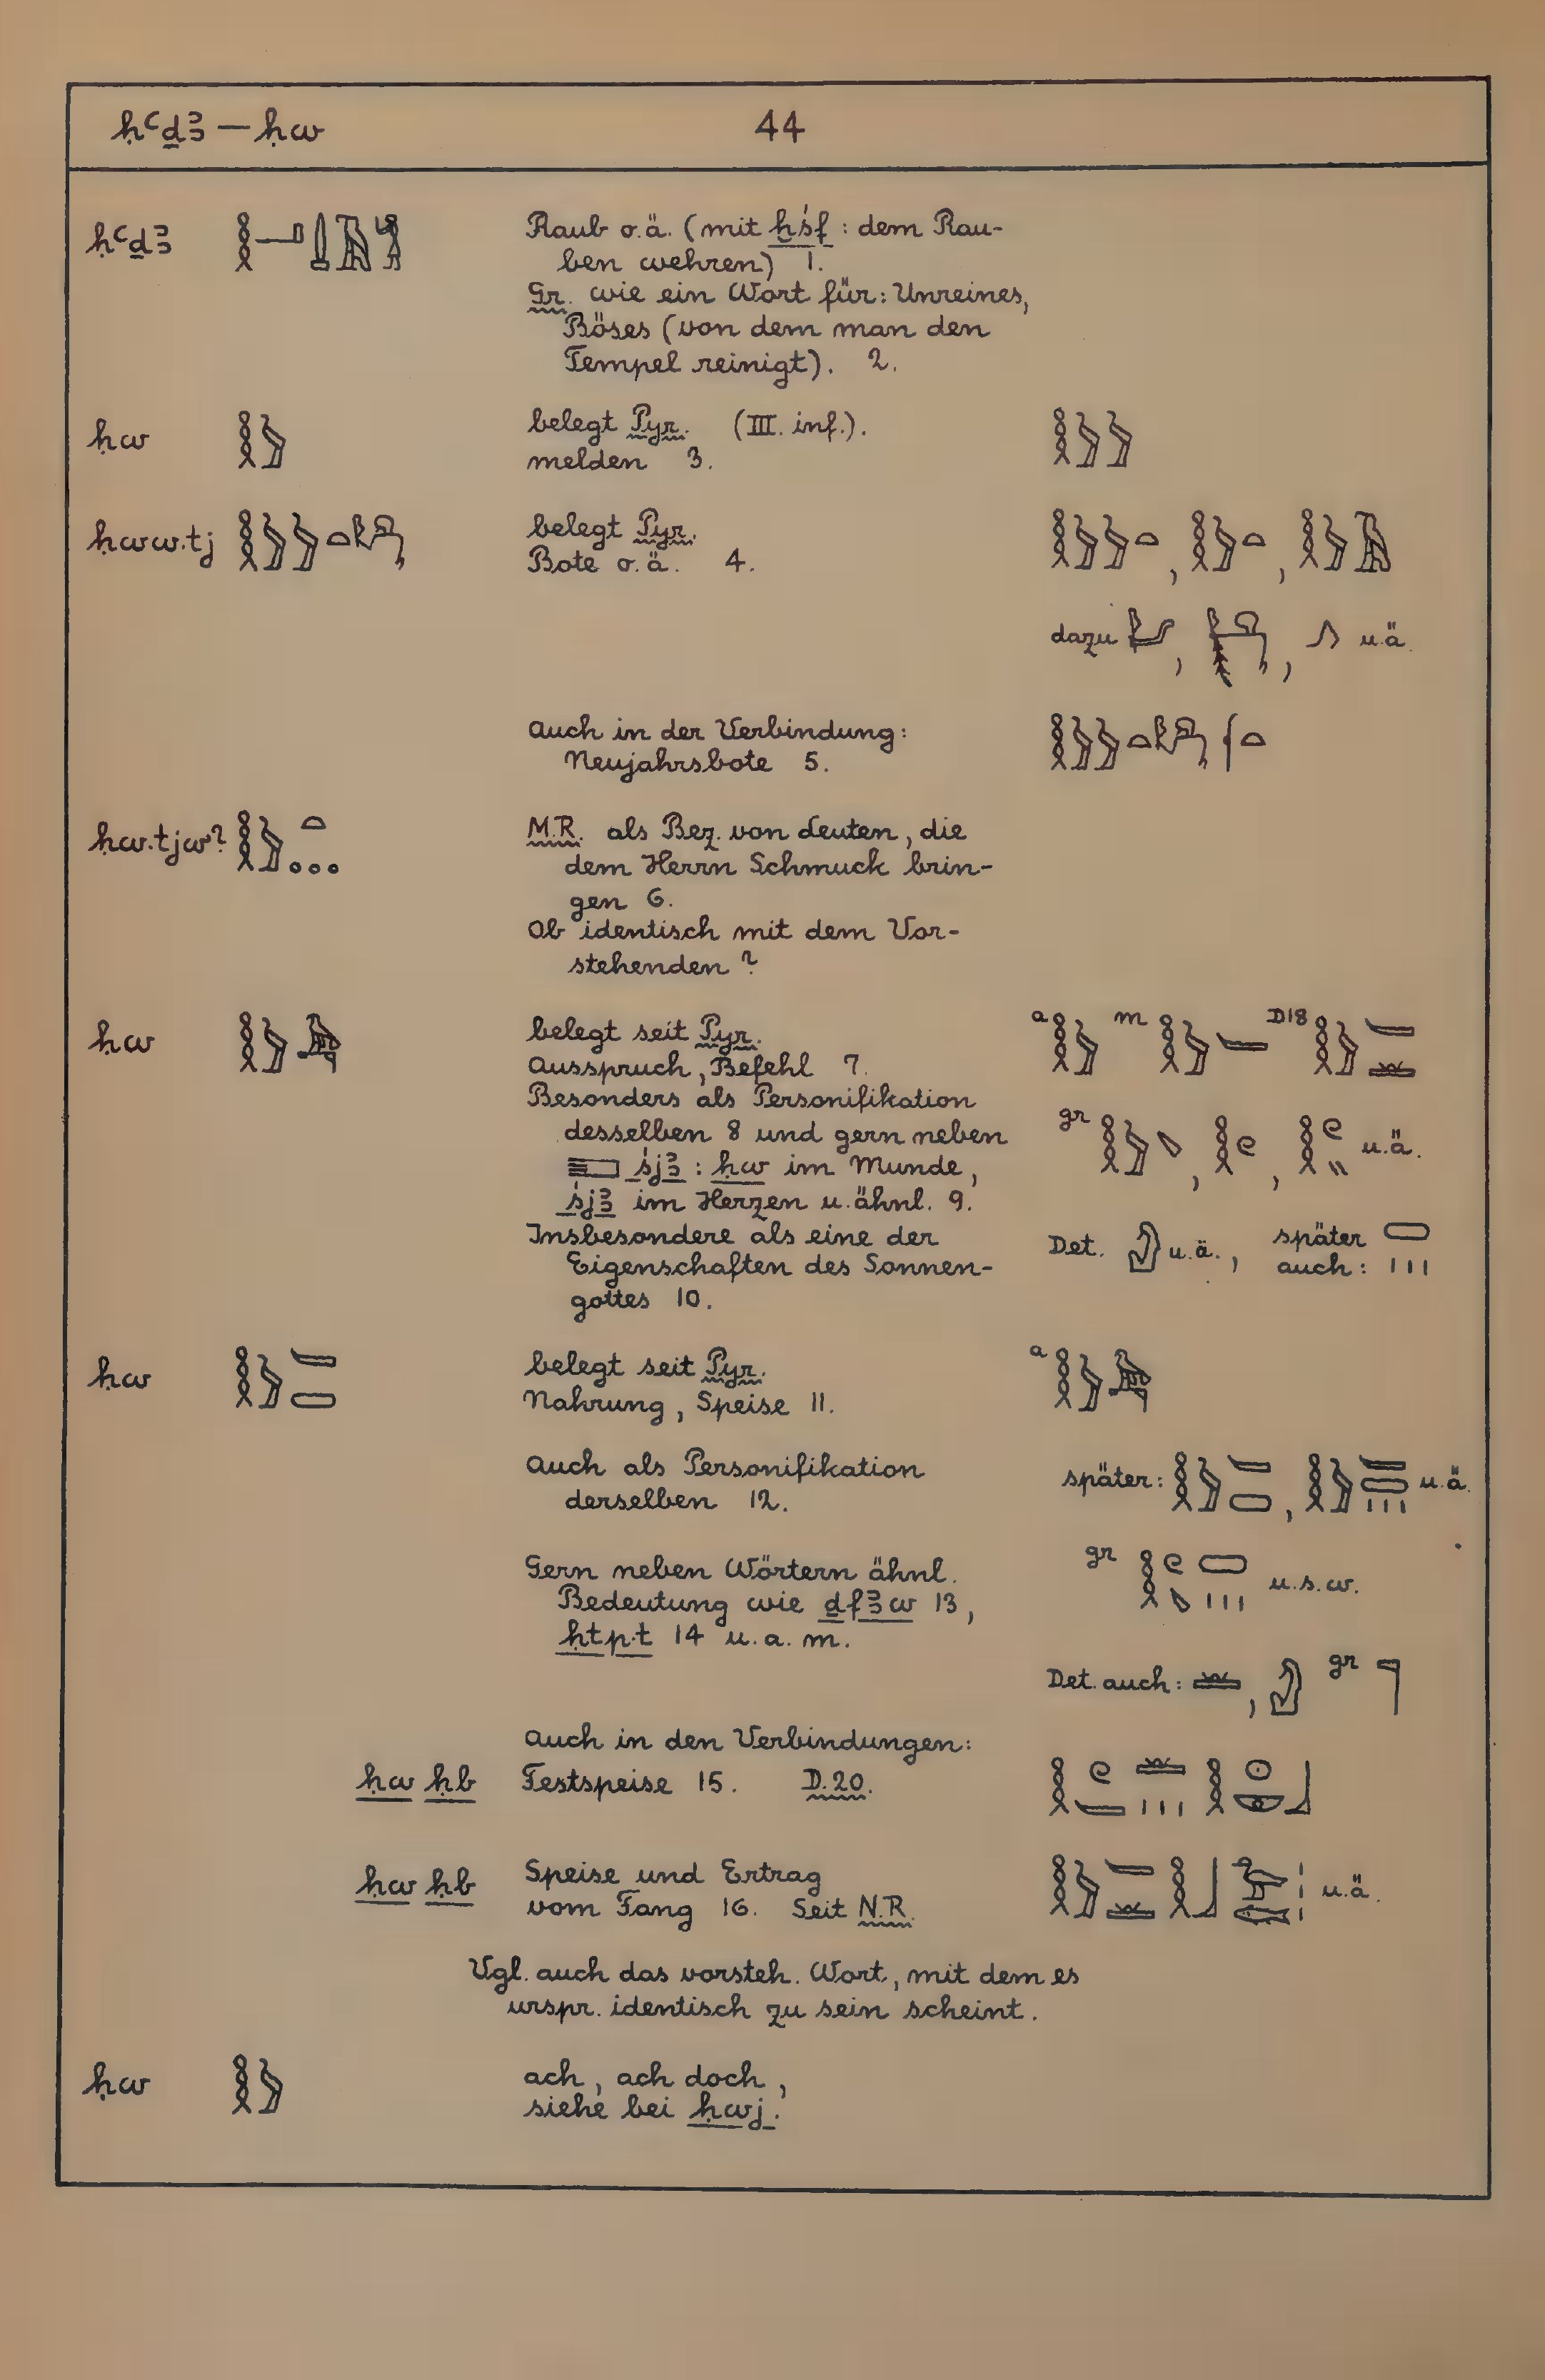 ḥꜥḏꜣ — ḥw 44
ḥꜥḏꜣ 𓎛𓂝𓍑𓄿𓀜 Raub o.ä. (mit ḫśf : dem Rau-
ben wehren) 1.
Gr. wie ein Wort für: Unreines,
Böses (von dem man den
Tempel reinigt). 2.
ḥw 𓎛𓅱 belegt Pyr. (III. inf.). 𓎛𓅱𓅱
melden 3.
ḥww.tj 𓎛𓅱𓅱𓏏 belegt Pyr. 𓎛𓅱𓅱𓏏, 𓎛𓅱𓏏, 𓎛𓅱𓄿
Bote o.ä. 4.
dazu , , 𓂻 u.ä.
Auch in der Verbindung: 𓎛𓅱𓅱𓏏 𓆳𓏏
Neujahrsbote 5.
ḥw.tjw? 𓎛𓅱𓏏 M.R. als Bez. von Leuten, die
dem Herrn Schmuck brin-
gen 6.
Ob identisch mit dem Vor-
stehenden?
ḥw 𓎛𓅱𓅆 belegt seit Pyr. a 𓎛𓅱 m 𓎛𓅱 D18 𓎛𓅱
Ausspruch, Befehl 7.
Besonders als Personifikation
desselben 8 und gern neben gr 𓎛𓅱, 𓎛𓏲, 𓎛𓏲𓏭 u.ä.
śjꜣ : ḥw im Munde,
śjꜣ im Herzen u. ähnl. 9.
Insbesondere als eine der Det. u.ä., später
Eigenschaften des Sonnen- auch: 𓏥
gottes 10.
ḥw 𓎛𓅱 belegt seit Pyr. a 𓎛𓅱𓅆
Nahrung, Speise 11.
Auch als Personifikation später: 𓎛𓅱, 𓎛𓅱𓏥 u.ä.
derselben 12.
Gern neben Wörtern ähnl. gr 𓎛𓏲𓏥 u.s.w.
Bedeutung wie ḏfꜣw 13,
ḥtp.t 14 u. a. m.
Det. auch: , gr 𓊹
Auch in den Verbindungen:
ḥw ḥb Festspeise 15. D.20. 𓎛𓏲𓏥𓎛𓇳𓎱𓃀
ḥw ḥb Speise und Ertrag 𓎛𓅱𓎛𓃀 u.ä.
vom Fang 16. Seit N.R.
Vgl. auch das vorsteh. Wort, mit dem es
urspr. identisch zu sein scheint.
ḥw 𓎛𓅱 ach, ach doch,
siehe bei ḥwj.